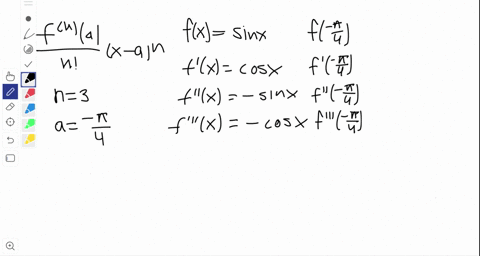 f^(n)(a)/n! (x-a)^n
n=3
a=-π/4
f(x)=sinx f(-π/4)
f'(x)=cosx f'(-π/4)
f''(x)=-sinx f''(-π/4)
f'''(x)=-cosx f'''(-π/4)